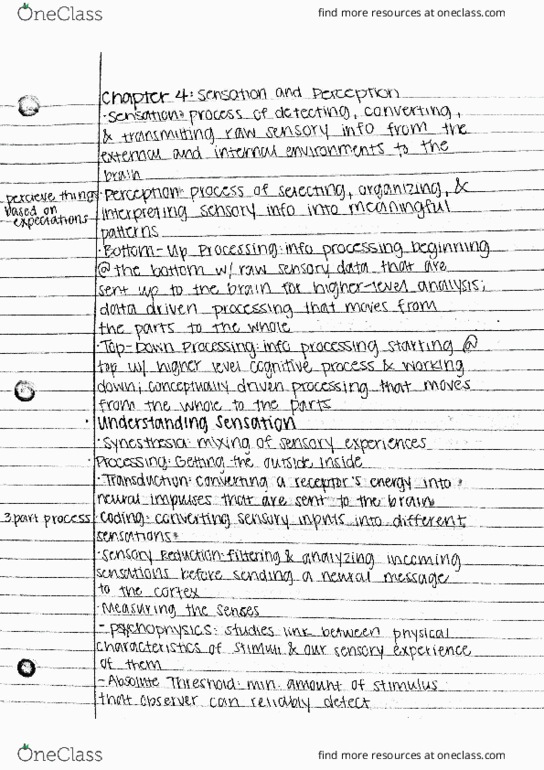 OneClass
find more resources at oneclass.com
Chapter 4: Sensation and Perception
·Sensation: process of detecting, converting,
& transmitting raw sensory info from the
external and internal environments to the
brain
percieve things
based on
expectations
·Perception: process of selecting, organizing, &
interpreting sensory info into meaningful
patterns
·Bottom-Up Processing: info processing beginning
@ the bottom w/ raw sensory data that are
sent up to the brain for higher-level analysis;
data driven processing that moves from
the parts to the whole
·Top-Down Processing: info processing starting @
top w/ higher level cognitive process & working
down; conceptually driven processing that moves
from the whole to the parts
·Understanding Sensation
·Synesthesia: mixing of sensory experiences
·Processing: Getting the outside inside
·Transduction: converting a receptor's energy into
neural impulses that are sent to the brain
3 part process
·Coding: converting sensory inputs into different
sensations
·Sensory Reduction: filtering & analyzing incoming
sensations before sending a neural message
to the cortex
·Measuring the Senses
-Psychophysics: studies link between physical
characteristics of stimuli & our sensory experience
of them
-Absolute Threshold: min. amount of stimulus
that observer can reliably detect
OneClass
find more resources at oneclass.com